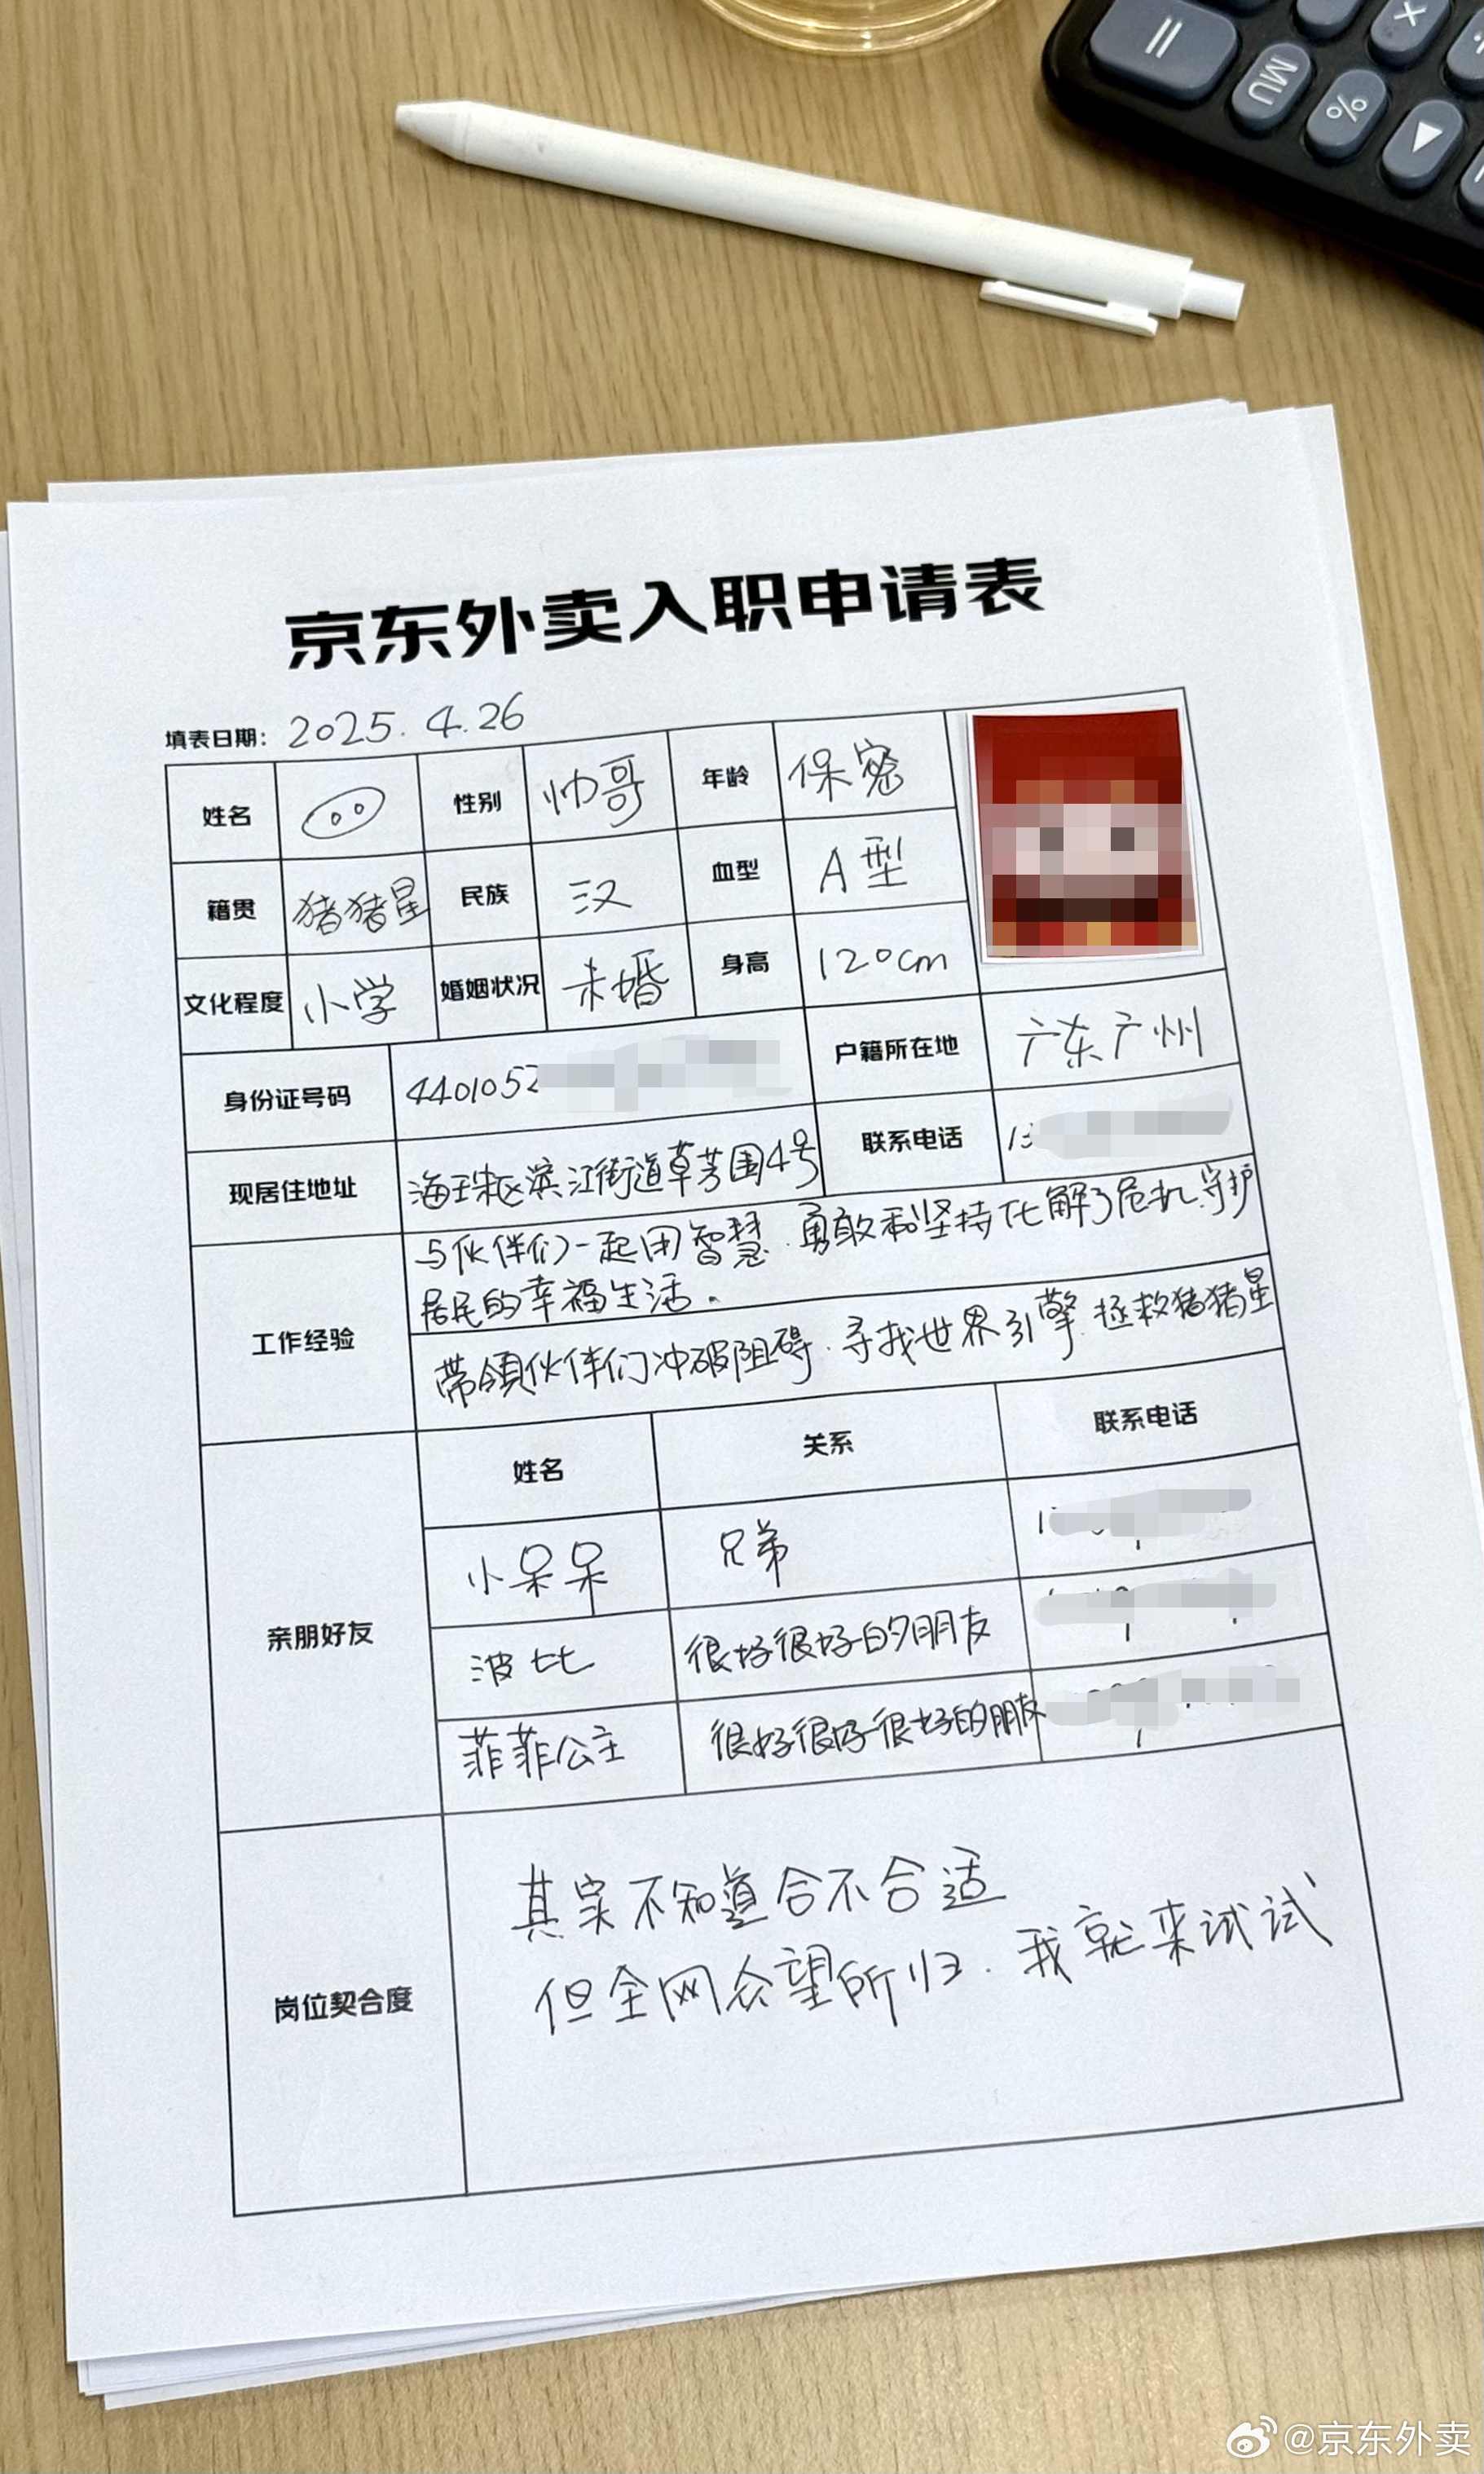 =
MU
%
×
京东外卖入职申请表
填表日期： 2025.4.26
姓名 性别 帅哥 年龄 保密
籍贯 猪猪星 民族 汉 血型 A型
文化程度 小学 婚姻状况 未婚 身高 120cm
身份证号码 4401052 户籍所在地 广东广州
现居住地址 海珠区滨江街道草芳围4号 联系电话 13
工作经验
与伙伴们一起用智慧、勇敢和坚持化解了危机、守护
居民的幸福生活。
带领伙伴们冲破阻碍、寻找世界引擎、拯救猪猪星
亲朋好友
姓名 关系 联系电话
小呆呆 兄弟 1
波比 很好很好的朋友
菲菲公主 很好很好很好的朋友
岗位契合度
其实不知道合不合适
但全网众望所归、我就来试试
@京东外卖